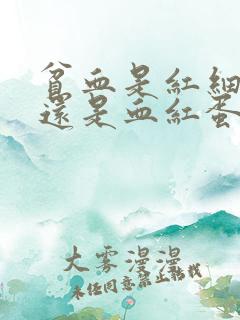 貧血是紅細
還是血紅蛋
大霧漫漫
未經同意禁止轉載